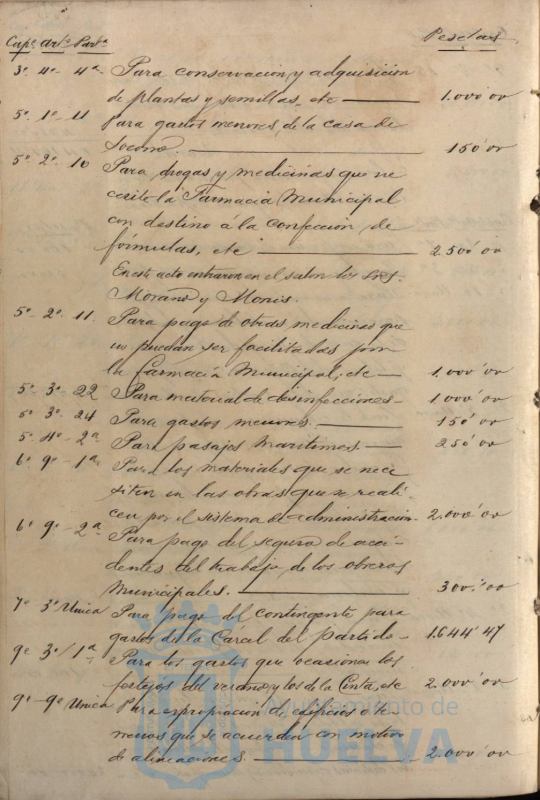 Cap.º Art.º Part.ª Pesetas
3º 4º 4ª Para conservación y adquisición
de plantas y semillas, etc 1.000'00
5º 1º 11 Para gastos menores, de la casa de
Socorro. 150'00
5º 2º 10 Para drogas y medicinas que ne
cesite la Farmacia Municipal
con destino á la confeccion de
fórmulas, etc 2.500'00
En este acto entraron en el salon los Sres.
Morano y Monis.
5º 2º 11. Para pago de otras medicinas que
no puedan ser facilitadas por
la Farmacia Municipal, etc 1.000'00
5º 3º 22 Para material de desinfecciones 1.000'00
5º 3º 24 Para gastos menores. 150'00
5º 4º 2ª Para pasajes marítimos. 250'00
6º 9º 1ª Para los materiales que se nece
siten en las obras que se reali
cen por el sistema de administracion 2.000'00
6º 9º 2ª Para pago del seguro de acci-
dentes del trabajo de los obreros
Municipales. 300'00
7º 3º Unica Para pago del contingente para
gastos de la Carcel del partido 1.644'47
9º 3º 1ª Para los gastos que ocasionen los
festejos del verano y los de la Cinta, etc 2.000'00
9º 9º Unica Para expropiacion de edificios ó te
rrenos que se acuerden con motivo
de alineaciones. 2.000'00
Ayuntamiento de
HUELVA